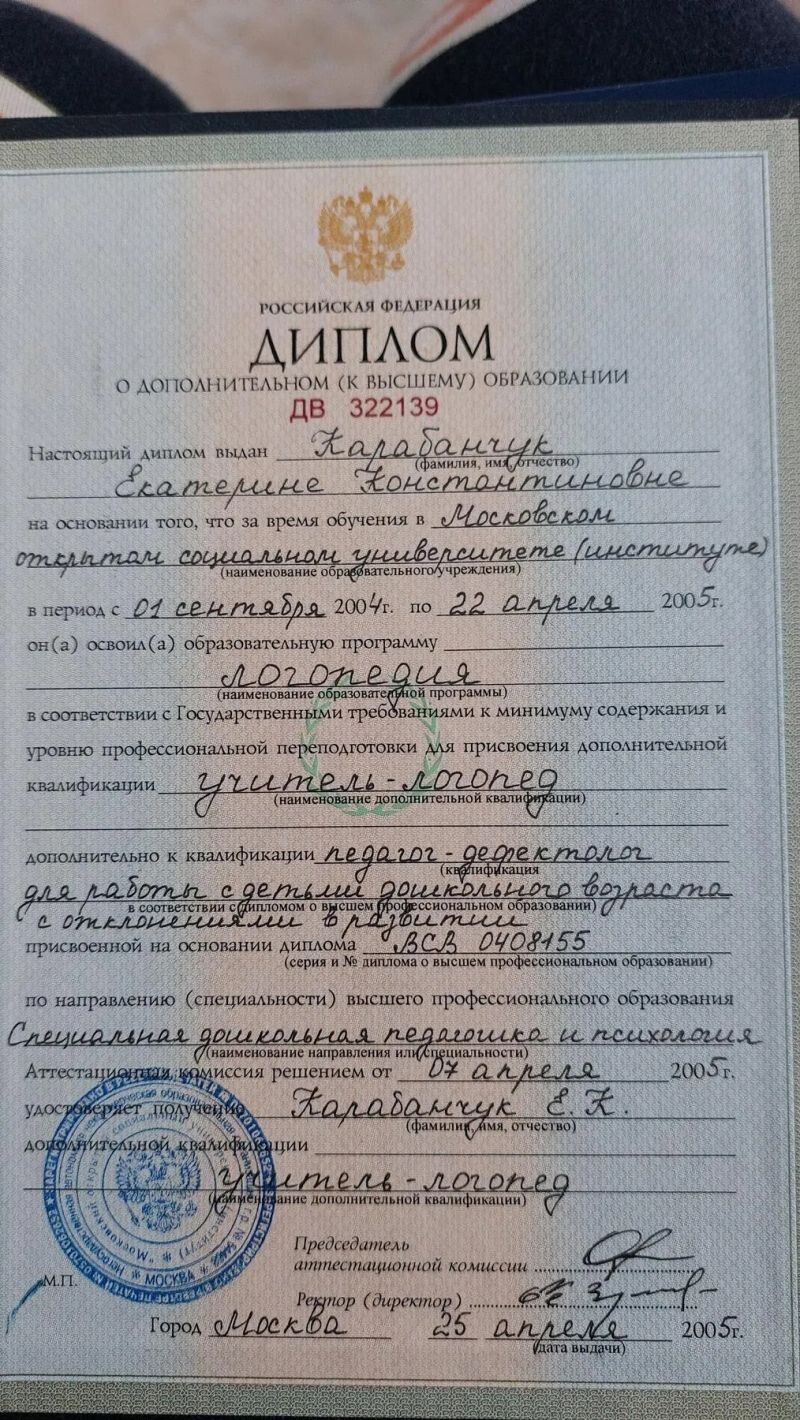 РОССИЙСКАЯ ФЕДЕРАЦИЯ
ДИПЛОМ
О ДОПОЛНИТЕЛЬНОМ (К ВЫСШЕМУ) ОБРАЗОВАНИИ
ДВ 322139
Настоящий диплом выдан Карабанчук
(фамилия, имя, отчество)
Екатерине Константиновне
на основании того, что за время обучения в Московском
открытом социальном университете (институте)
(наименование образовательного учреждения)
в период с 01 сентября 2004г. по 22 апреля 2005г.
он(а) освоил(а) образовательную программу
логопедия
(наименование образовательной программы)
в соответствии с Государственными требованиями к минимуму содержания и
уровню профессиональной переподготовки для присвоения дополнительной
квалификации учитель-логопед
(наименование дополнительной квалификации)
дополнительно к квалификации педагог-дефектолог
(квалификация
для работы с детьми дошкольного возраста
в соответствии с дипломом о высшем профессиональном образовании)
с отклонениями в развитии
присвоенной на основании диплома ВСВ 0408155
(серия и № диплома о высшем профессиональном образовании)
по направлению (специальности) высшего профессионального образования
Специальная дошкольная педагогика и психология
(наименование направления или специальности)
Аттестационная комиссия решением от 07 апреля 2005г.
удостоверяет получение Карабанчук Е.К.
(фамилия, имя, отчество)
дополнительной квалификации
учитель-логопед
(наименование дополнительной квалификации)
Председатель
аттестационной комиссии
МОСКВА
М.П.
Ректор (директор)
Город Москва 25 апреля 2005г.
(дата выдачи)